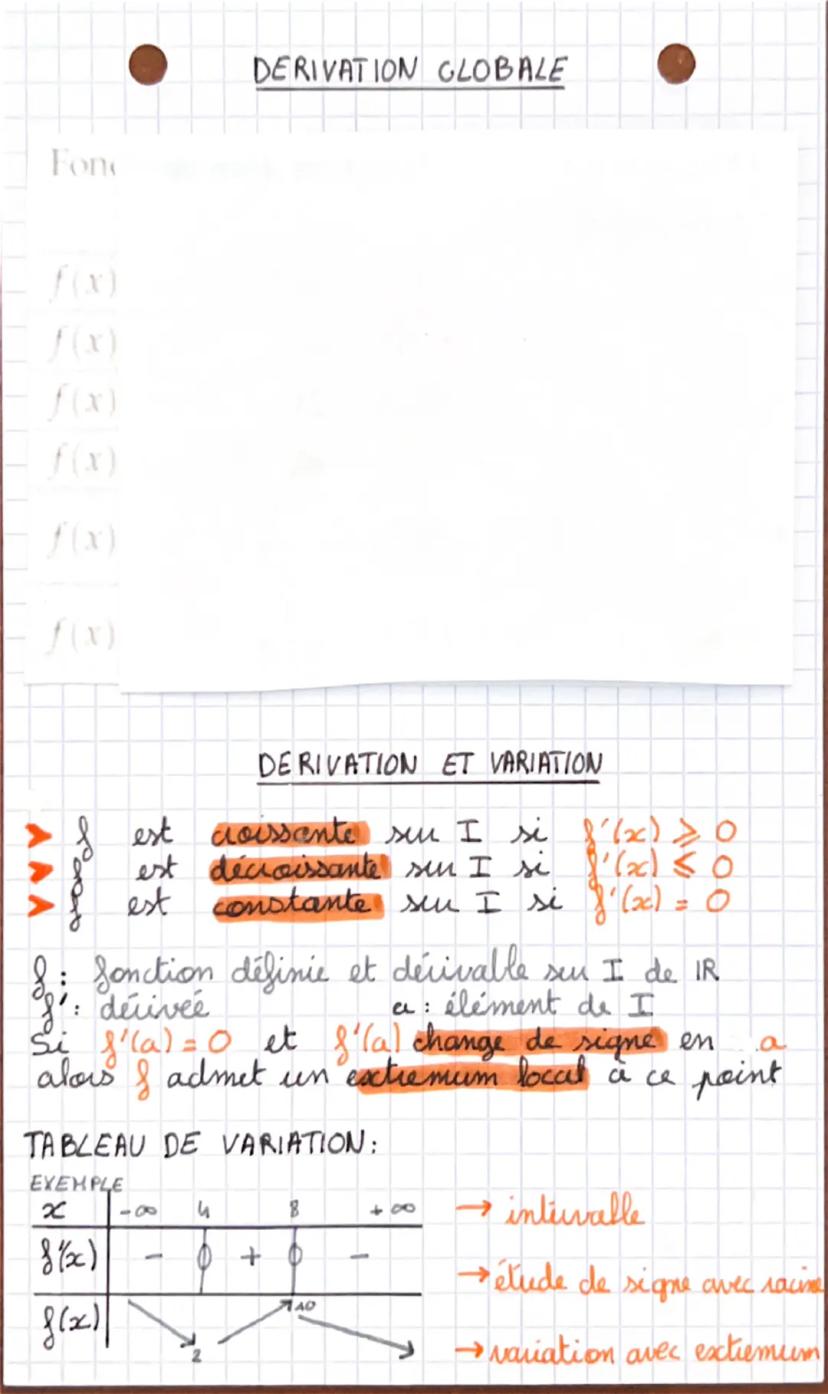 DERIVATION GLOBALE
Fonc
f(x)
f(x)
f(x)
f(x)
f(x)
f(x)
DERIVATION ET VARIATION
➤ f est croissante sur I si f'(x) ⩾ 0
➤ f est décroissante sur I si f'(x) ⩽ 0
➤ f est constante sur I si f'(x) = 0
f : fonction définie et dérivable sur I de IR
f' : dérivée a : élément de I
Si f'(a) = 0 et f'(a) change de signe en a
alors f admet un extremum local à ce point
TABLEAU DE VARIATION :
EXEMPLE
x -∞ 4 8 +∞ → intervalle
f'(x) - 0 + 0 - → étude de signe avec racine
f(x) 2 10 → variation avec extremum